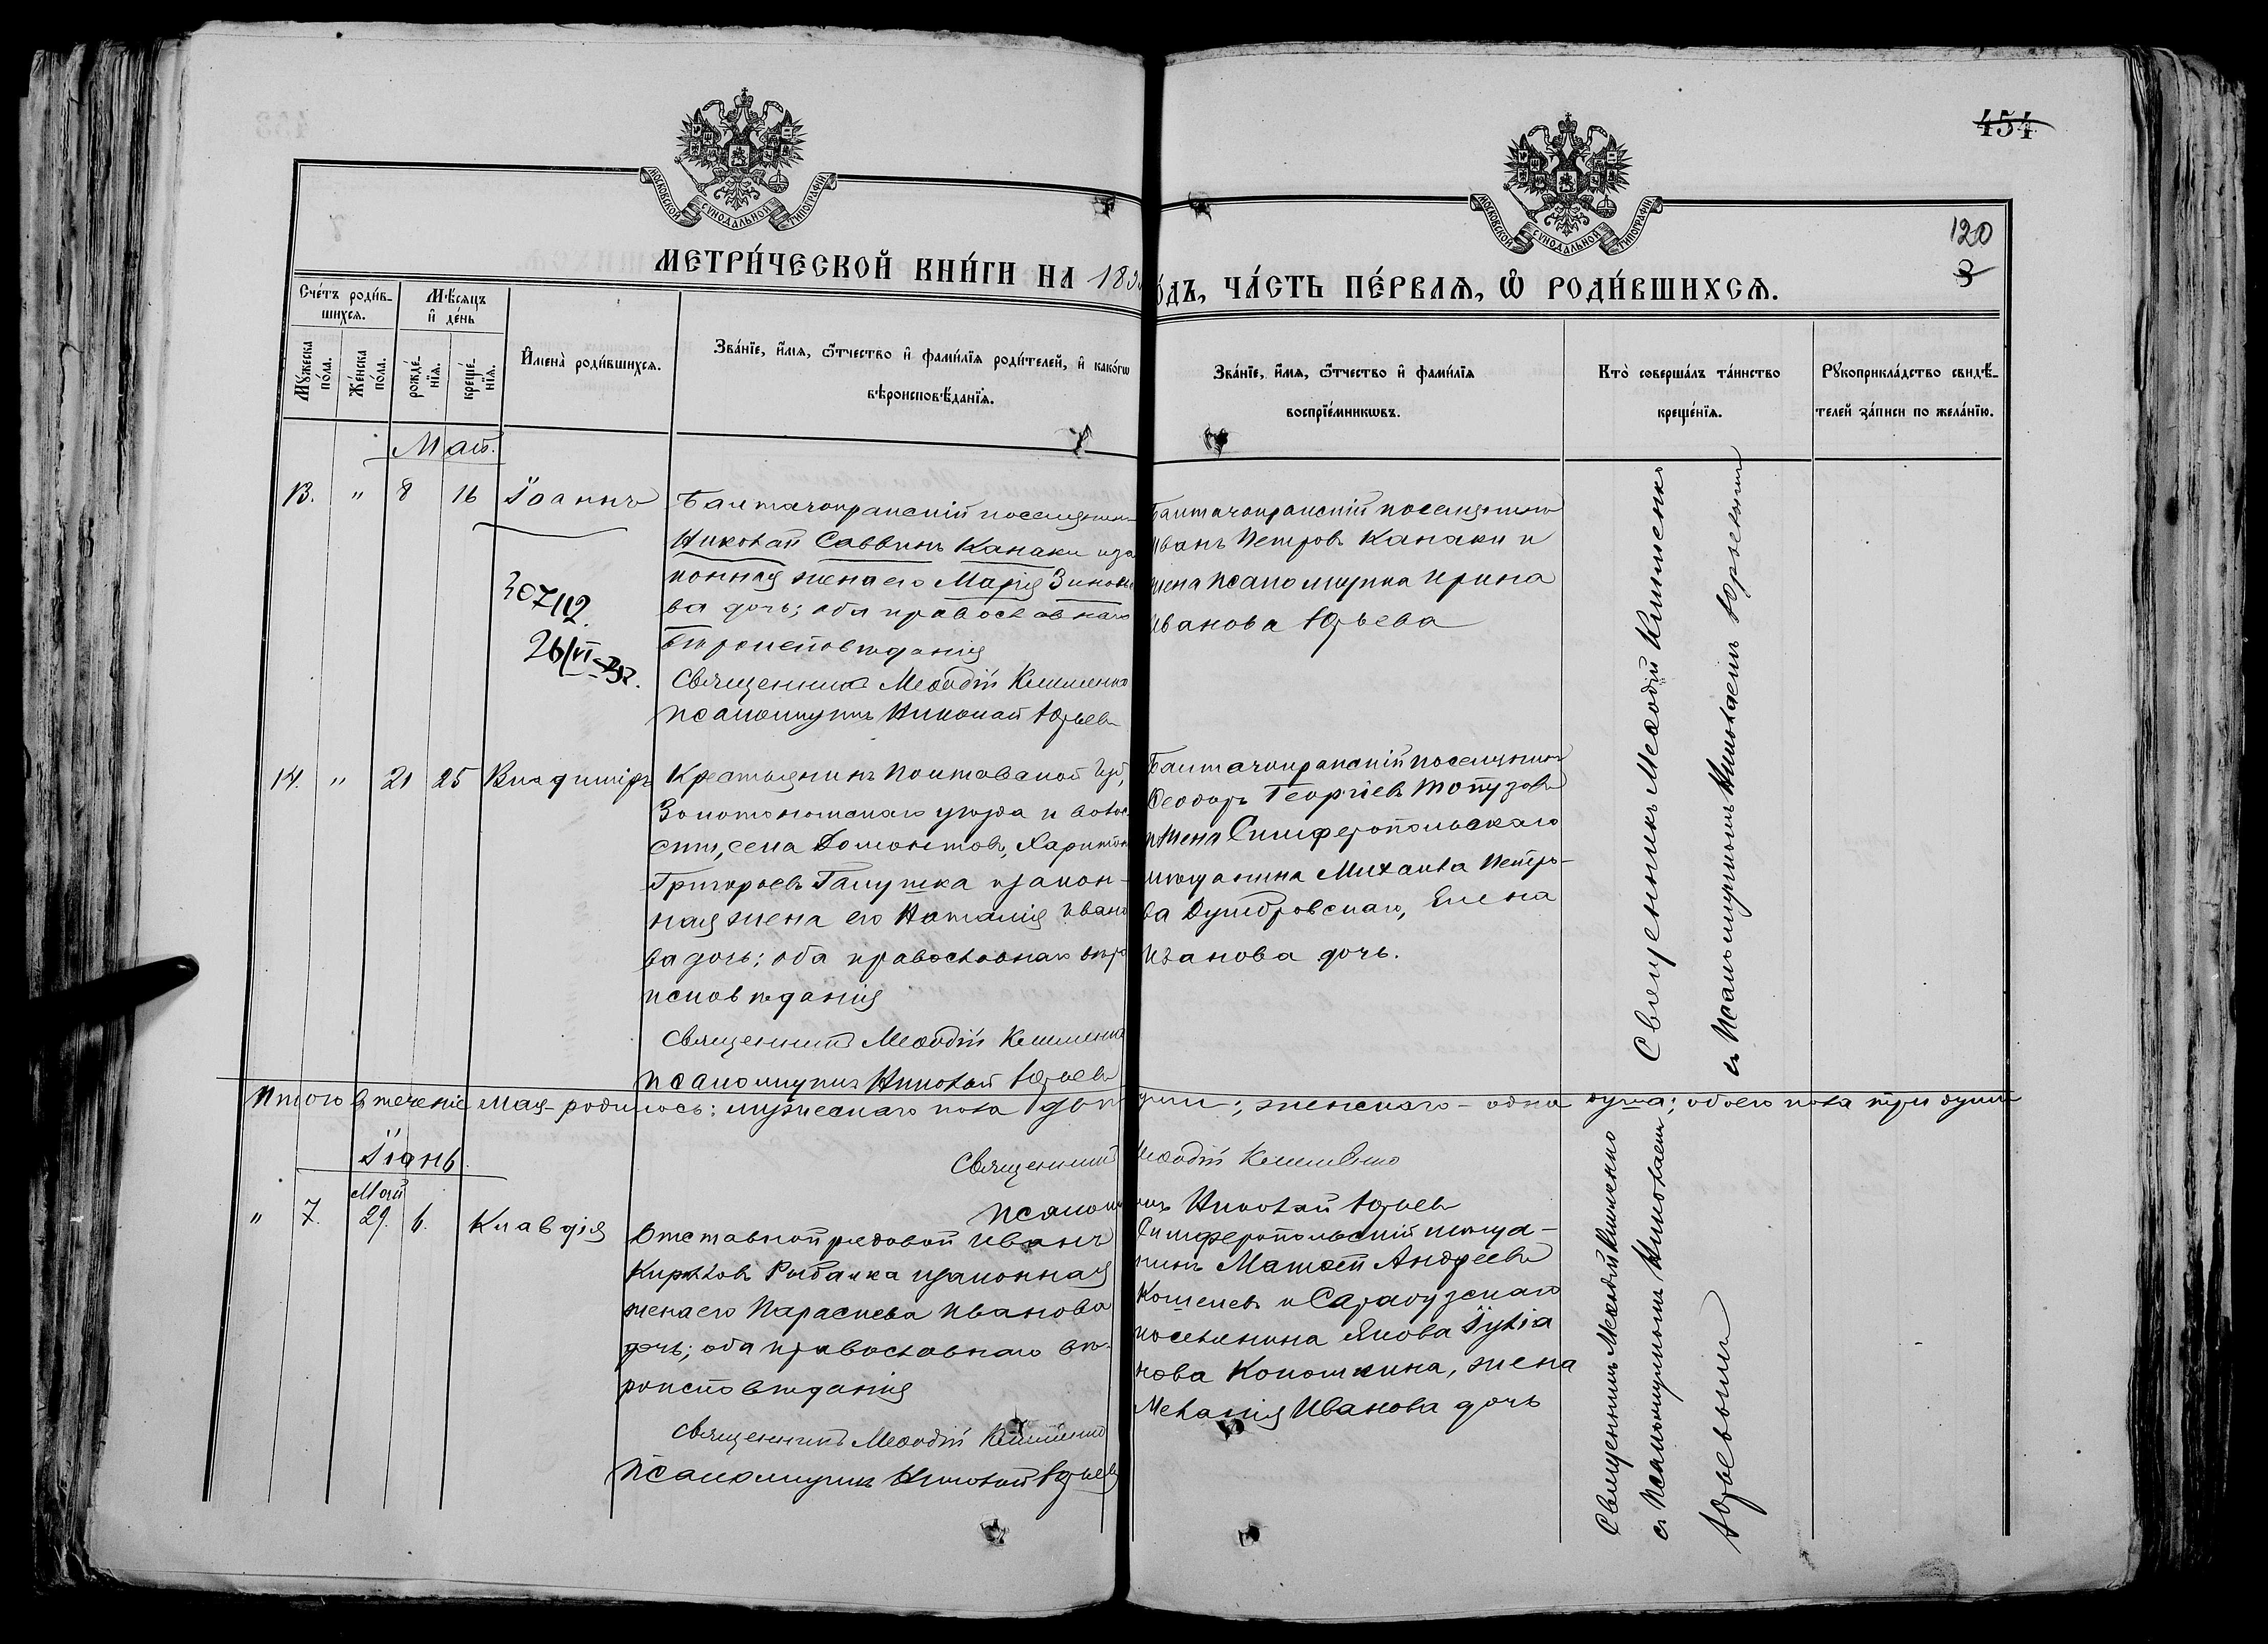 454
МОСКОВСКОЙ СУНОДАЛЬНОЙ ТИПОГРАФІИ
МОСКОВСКОЙ СУНОДАЛЬНОЙ ТИПОГРАФІИ
120
3
МЕТРИ́ЧЕСКОЙ КНИ́ГИ НА 18
ДЪ, ЧА́СТЬ ПЕ́РВАЯ, Ѡ РОДИ́ВШИХСЯ.
Сче́тъ роди́в-
шихся.
Мѣсяцъ
и де́нь
Му́жеска по́ла.
Же́нска по́ла.
рожде́-нїя.
креще́-нїя.
Имена̀ роди́вшихся.
Зва́нїе, и́мя, ѻ́тчество и фами́лїя роди́телей, и како́гѡ
вѣроисповѣ́данїя.
Зва́нїе, и́мя, ѻ́тчество и фами́лїя
воспрїе́мникѡвъ.
Кто̀ соверша́лъ та́инство
креще́нїя.
Рукоприкла́дство свидѣ́-
телей за́писи по жела́нїю.
Май.
13. " 8 16 Іоаннъ
Николай Саввинъ Канаки и за
конная жена его Марія Зиновье
ва дочь; оба православнаго
вѣроисповѣданія
Священникъ Меѳодій Клименко
Псаломщикъ Николай Юрьевъ
поселянинъ
Иванъ Петровъ Канаки и
жена псаломщика Ирина
Иванова Юрьева
307/12.
26/VI
Священникъ Меѳодій Клименко
съ Псаломщикомъ Николаемъ Юрьевымъ
14. " 21 25 Владиміръ
Крестьянинъ Полтавской Губ,
Золотоношскаго уѣзда и воло
сти, села Домонтовъ, Харитонъ
Григорьевъ Галушка и закон-
ная жена его Наталія Ивано
ва дочь; оба православнаго вѣро
исповѣданія
Священникъ Меѳодій Клименко
Псаломщикъ Николай Юрьевъ
поселянинъ
Ѳеодоръ Георгіевъ Топузовъ
и жена Симферопольскаго
мѣщанина Михаила Петро-
ва Домбровскаго, Елена
Иванова дочь.
Итого въ теченіе мая родилось: мужескаго пола двѣ души; женскаго - одна душа; обоего пола три души
Священникъ Меѳодій Клименко
Псаломщикъ Николай Юрьевъ
Іюнь.
Май
" 7. 29. 6. Клавдія
Отставной рядовой Иванъ
Кирилловъ Рыбалка и законная
жена его Параскева Иванова
дочь; оба православнаго вѣ-
роисповѣданія
Священникъ Меѳодій Клименко
Псаломщикъ Николай Юрьевъ
Симферопольскій мѣща-
нинъ Матвей Андреевъ
Кошелевъ и Сарабузскаго
поселянина Якова Іулiа
нова Колошкина, жена
Меланія Иванова дочь
Священникъ Меѳодій Клименко
съ Псаломщикомъ Николаемъ
Юрьевымъ